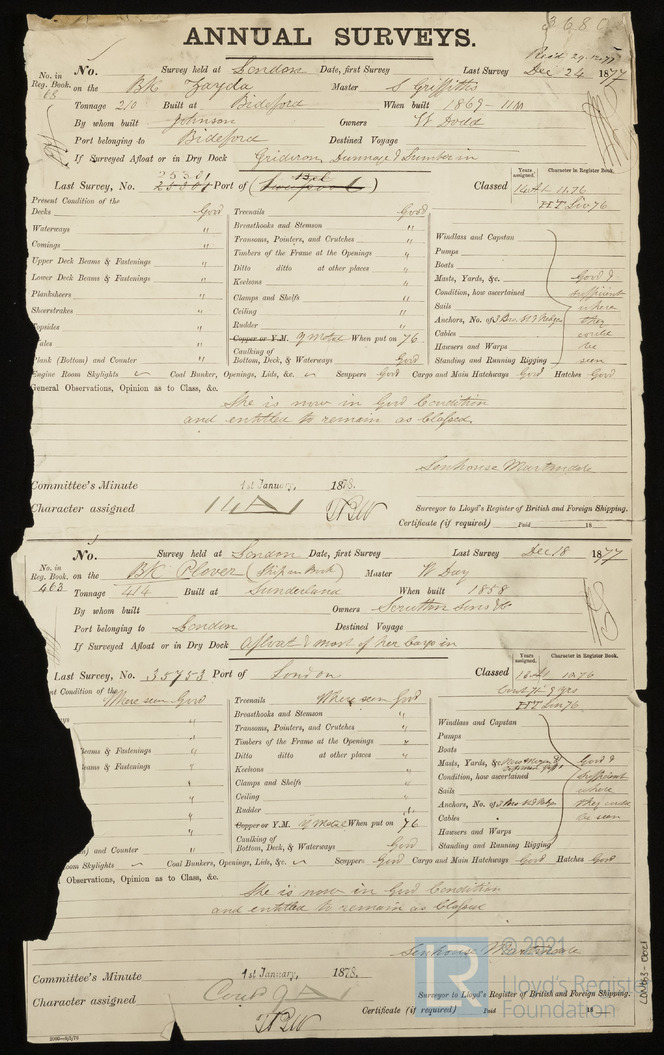 ANNUAL SURVEYS.
No. in Reg. Book. 68
No. Survey held at London Date, first Survey Last Survey Dec 24 1877
on the BK Zayda Master S Griffiths
Tonnage 210 Built at Bideford When built 1869-11M
By whom built Johnson Owners W Dodd
Port belonging to Bideford Destined Voyage
If Surveyed Afloat or in Dry Dock Gridiron, Dunnage & Lumber in
Last Survey, No. Port of (Liverpool) Classed
Years assigned. Character in Register Book.
14A1 11.76
HT Liv 76
Present Condition of the
Decks Good Treenails Good
Waterways " Breasthooks and Stemson "
Comings " Transoms, Pointers, and Crutches "
Upper Deck Beams & Fastenings " Timbers of the Frame at the Openings "
Lower Deck Beams & Fastenings " Ditto ditto at other places "
Planksheers " Keelsons "
Sheerstrakes " Clamps and Shelfs "
Topsides " Ceiling "
Wales " Rudder "
Plank (Bottom) and Counter " Copper or Y.M. Y Metal When put on 76
Caulking of Bottom, Deck, & Waterways Good
Windlass and Capstan
Pumps
Boats
Masts, Yards, &c. Good &
Condition, how ascertained sufficient
Sails where
Anchors, No. of 3 Bro. St 2 Kedges they
Cables could
Hawsers and Warps be
Standing and Running Rigging seen
Engine Room Skylights Coal Bunkers, Openings, Lids, &c. Scuppers Good Cargo and Main Hatchways Good Hatches Good
General Observations, Opinion as to Class, &c.
She is now in Good Condition
and entitled to remain as Classed.
Senhouse Martindale
Committee's Minute 1st January, 1878.
Character assigned 14A1
Surveyor to Lloyd's Register of British and Foreign Shipping.
Certificate (if required) Paid 18
No. in Reg. Book. 463
No. Survey held at London Date, first Survey Last Survey Dec 18 1877
on the BK Plover (Ship in Book) Master W Day
Tonnage 414 Built at Sunderland When built 1858
By whom built Owners Scrutton Sons & Co
Port belonging to London Destined Voyage
If Surveyed Afloat or in Dry Dock Afloat & most of her Cargo in
Last Survey, No. 35753 Port of London Classed
Years assigned. Character in Register Book.
13A1 10.76
Cont 71-9 yrs
HT Lon 76
nt Condition of the
Where seen Good Treenails Where seen Good
" Breasthooks and Stemson "
" Transoms, Pointers, and Crutches "
Beams & Fastenings " Timbers of the Frame at the Openings "
Beams & Fastenings " Ditto ditto at other places "
" Keelsons "
" Clamps and Shelfs "
" Ceiling "
" Rudder "
) and Counter " Copper or Y.M. Y Metal When put on 76
Caulking of Bottom, Deck, & Waterways Good
Windlass and Capstan
Pumps
Boats
Masts, Yards, &c. Good &
Condition, how ascertained sufficient
Sails where
Anchors, No. of 3 Bro. St 2 Kedges they could
Cables be seen
Hawsers and Warps
Standing and Running Rigging
oom Skylights Coal Bunkers, Openings, Lids, &c. Scuppers Good Cargo and Main Hatchways Good Hatches Good
l Observations, Opinion as to Class, &c.
She is now in Good Condition
and entitled to remain as Classed
Senhouse Martindale
Committee's Minute 1st January, 1878.
Character assigned Cont 9 A1
Surveyor to Lloyd's Register of British and Foreign Shipping.
Certificate (if required) Paid 18
© 2021
LR
Lloyd's Regist
Foundation